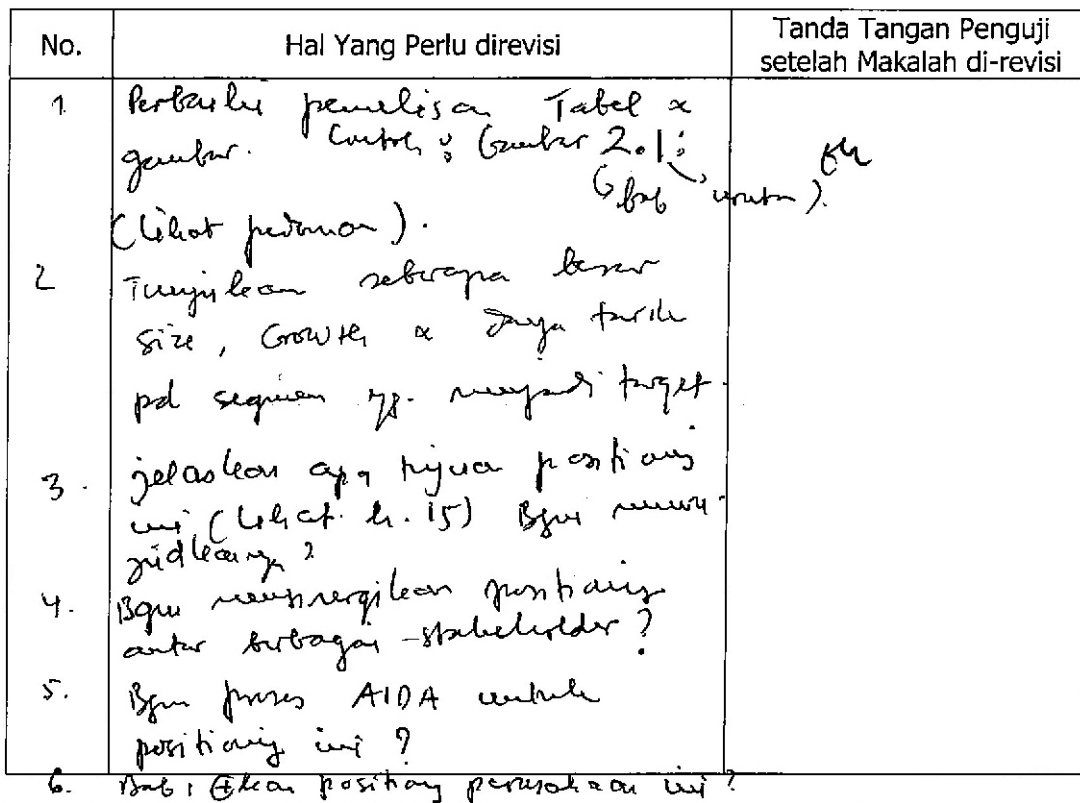 No.
Hal Yang Perlu direvisi
Tanda Tangan Penguji
setelah Makalah di-revisi
1. Perbaiki penulisan Tabel &
gambar. Contoh : Gambar 2.1 :
bab urutan)
(lihat pedoman).
2 Tunjukkan seberapa besar
size, Growth & daya tarik
pd segmen yg. menjadi target.
3. jelaskan apa tujuan positioning
ini (lihat h. 15) Bgm mewu-
judkannya ?
4. Bgm mensinergikan positioning
antar berbagai stakeholder ?
5. Bgm proses AIDA untuk
positioning ini ?
6. Bab 1 positioning perusahaan ini ?